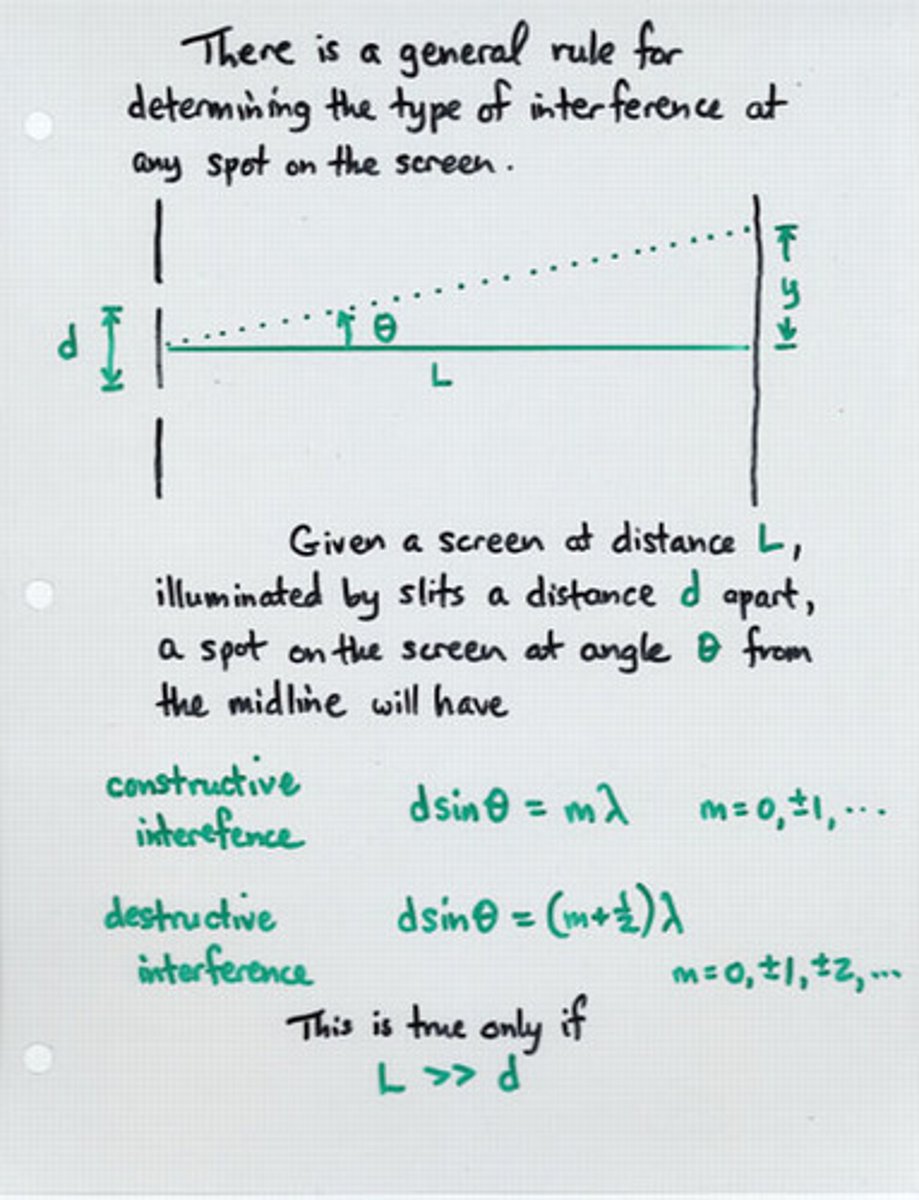 There is a general rule for
determining the type of interference at
any spot on the screen.
d
θ
L
y
Given a screen at distance L,
illuminated by slits a distance d apart,
a spot on the screen at angle θ from
the midline will have
constructive
interefence
dsinθ = mλ m=0,±1,...
destructive
interference
dsinθ = (m+½)λ
m=0,±1,±2,...
This is true only if
L >> d